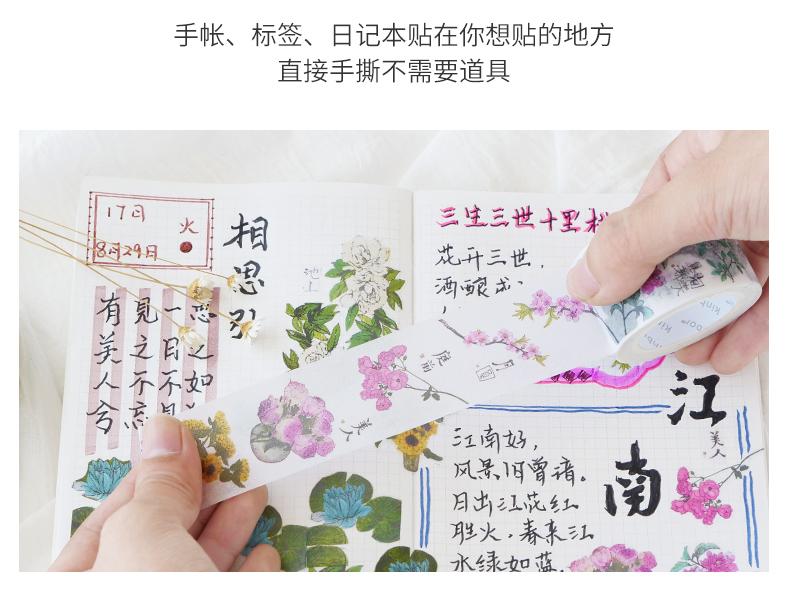 手帐、标签、日记本贴在你想贴的地方
直接手撕不需要道具
17日
火
8月29日
相思引
池上
有美人兮
见之不忘
一日不见
三生三世十里桃
花开三世，
酒酿成
庭前
美人
江南
江南好，
风景旧曾谙。
日出江花红
胜火，春来江
水绿如蓝。
美人